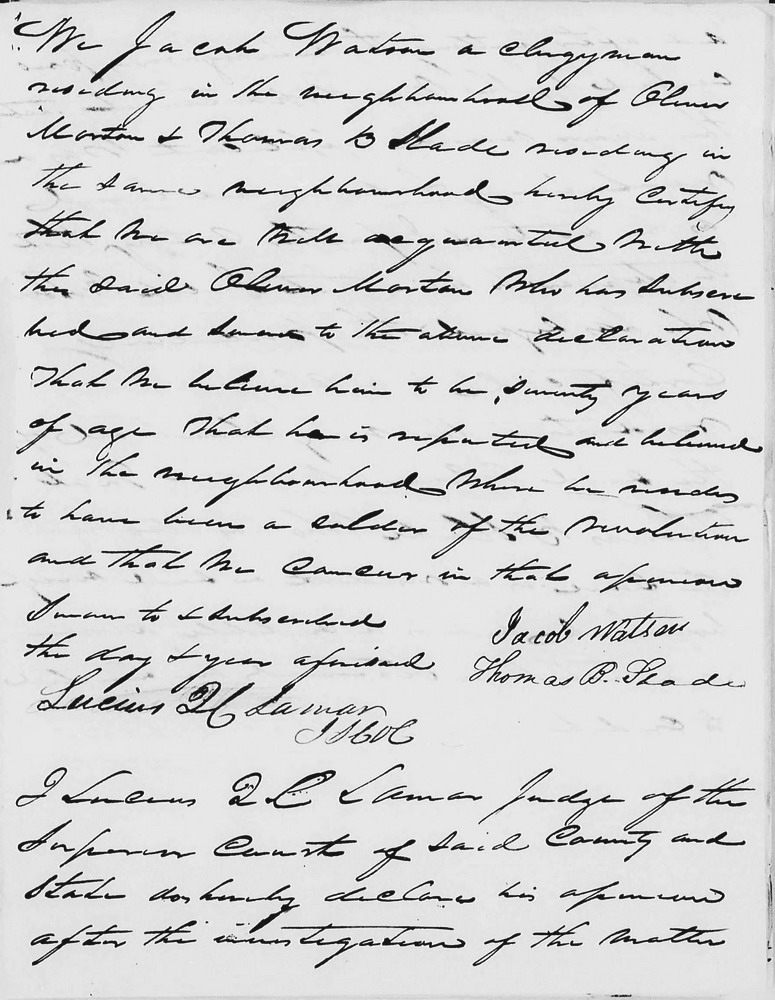 We Jacob Watson a clergyman
residing in the neighbourhood of Oliver
Morton & Thomas B Slade residing in
the same neighbourhood hereby certify
that we are well acquainted with
the said Oliver Morton who has subscri
bed and sworn to the above declaration
that we believe him to be seventy years
of age that he is reputed and believed
in the neighbourhood where he resides
to have been a soldier of the revolution
and that we concur in that opinion
Sworn to & subscribed
the day & year aforisaid
Jacob Watson
Thomas B. Slade
Lucius Q C Lamar
J S C O C
I Lucius Q C Lamar Judge of the
Superior Court of said County and
State do hereby declare his opinion
after the investigation of the matter